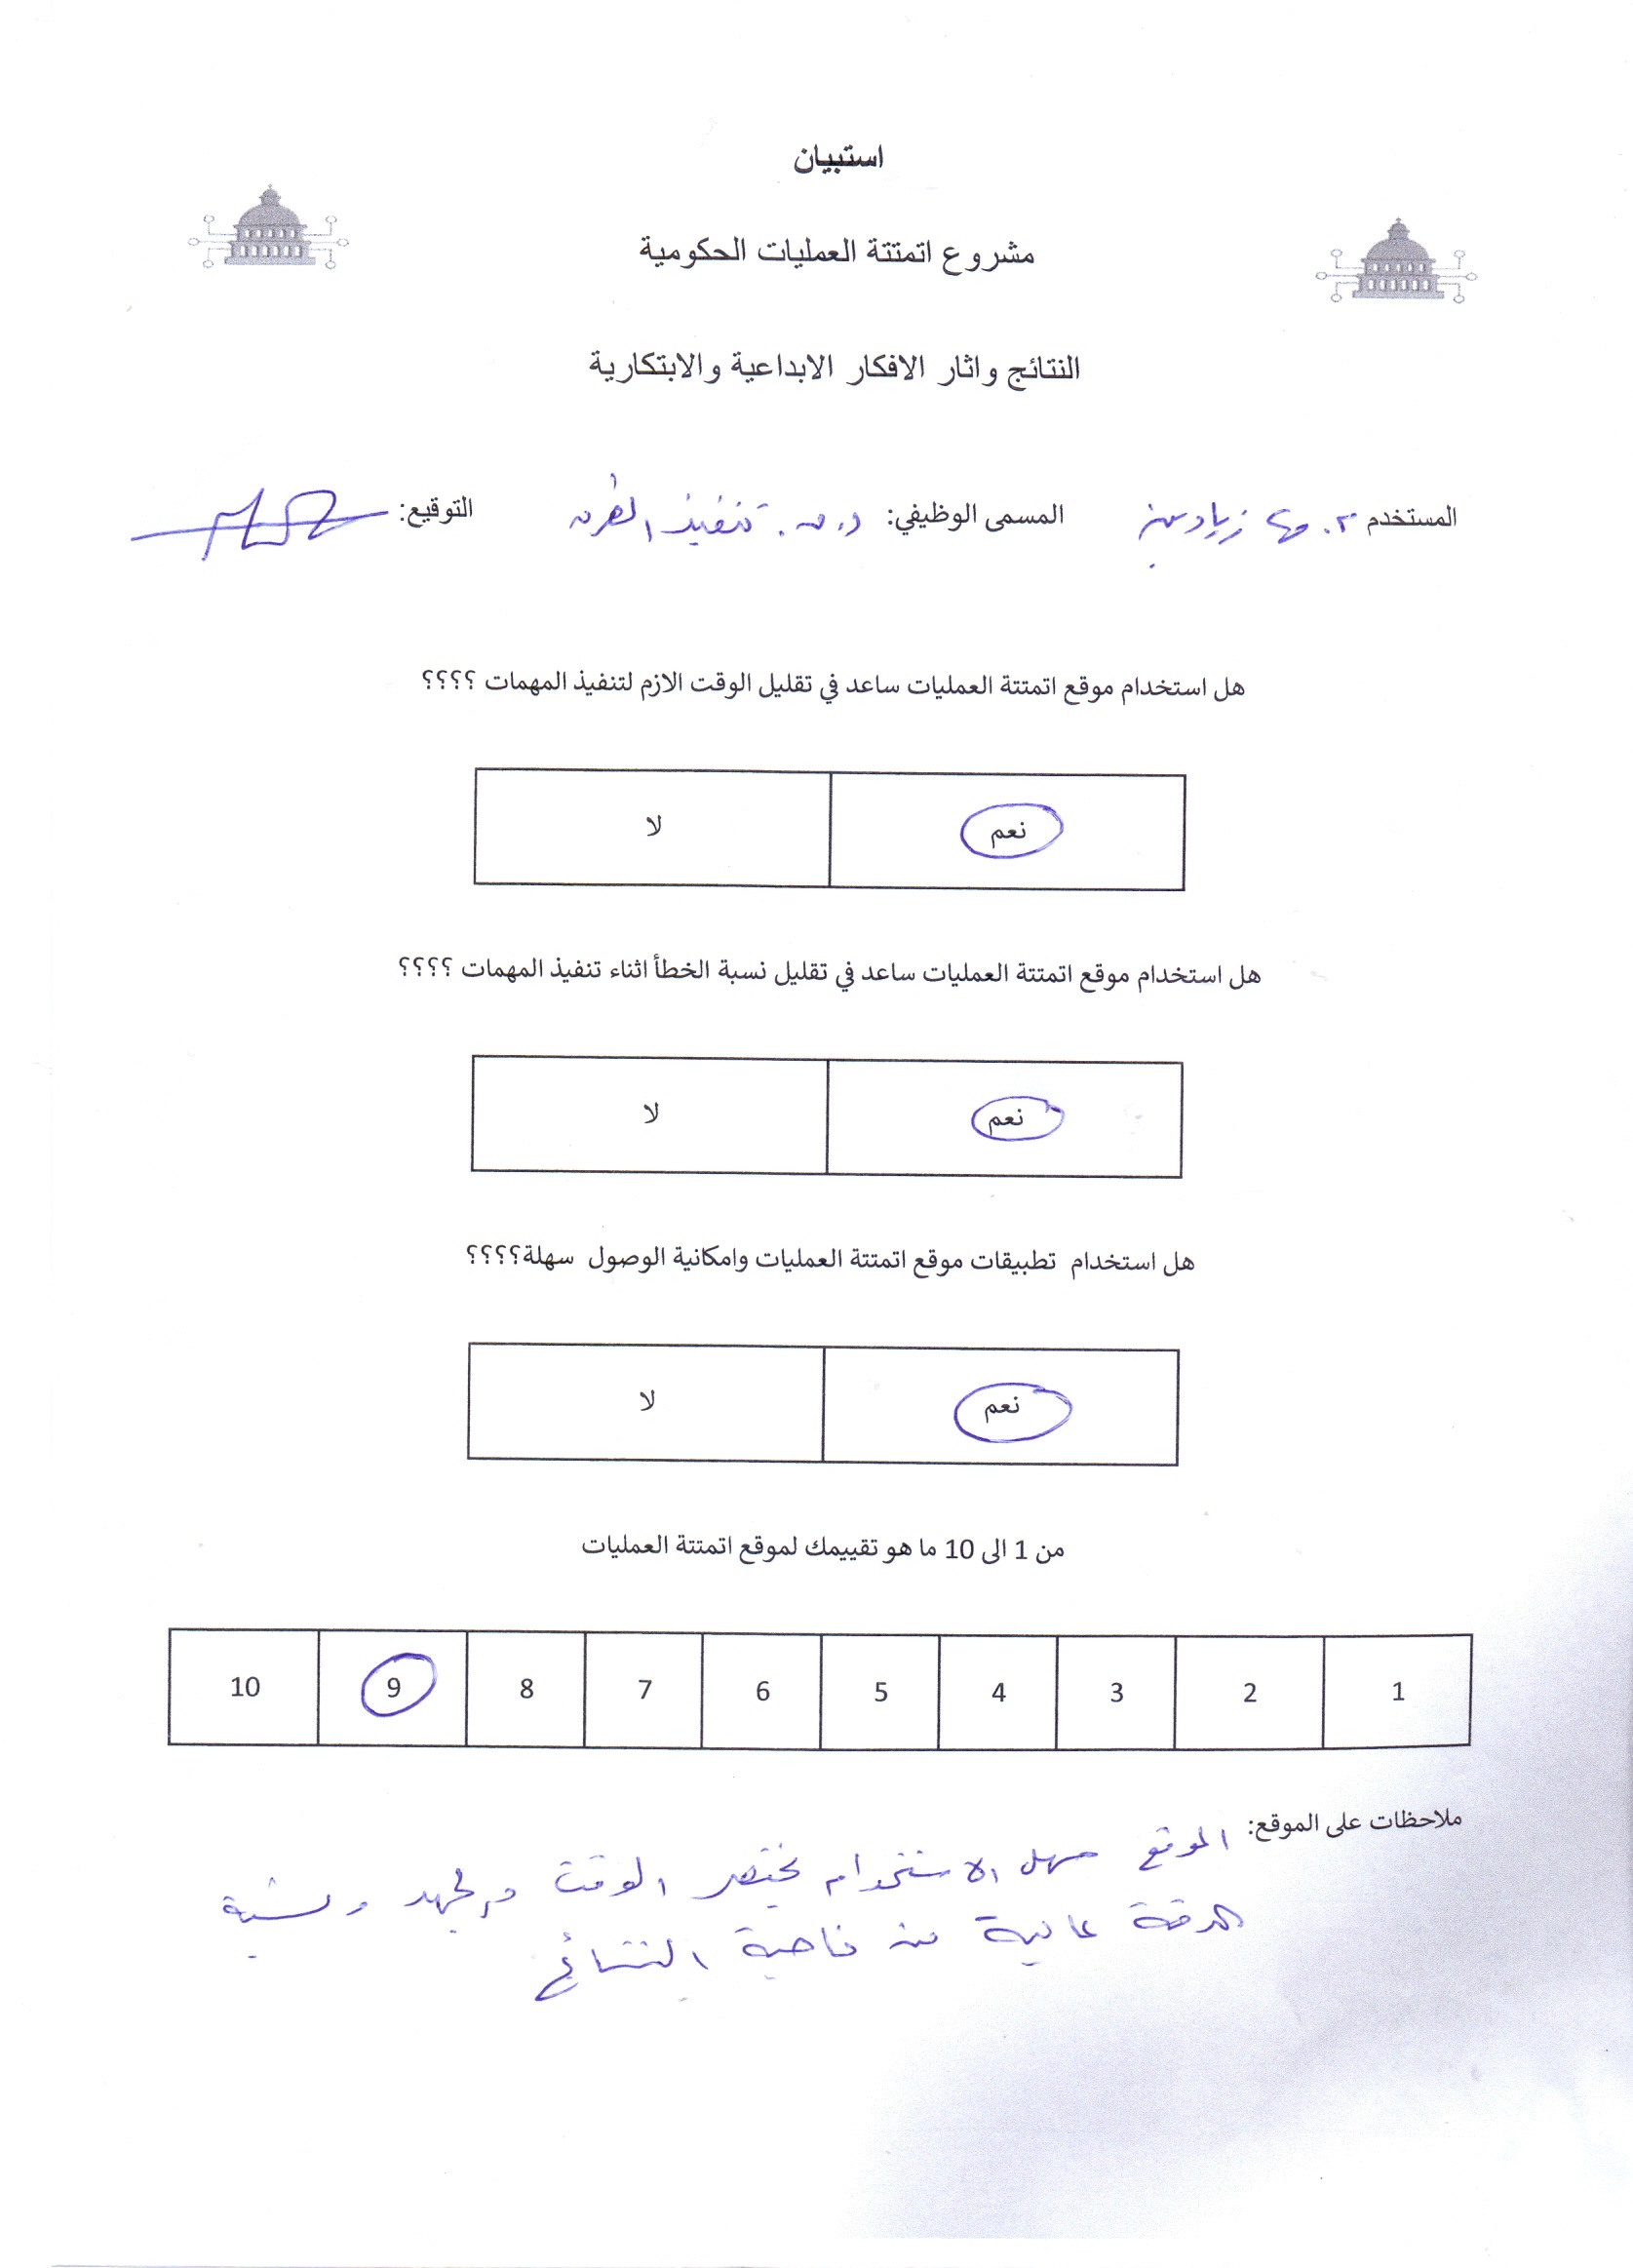 استبيان
مشروع اتمتتة العمليات الحكومية
النتائج واثار الافكار الابداعية والابتكارية
المستخدم م. مها زيادين المسمى الوظيفي: تنفيذ الطرق التوقيع:
هل استخدام موقع اتمتتة العمليات ساعد في تقليل الوقت الازم لتنفيذ المهمات ؟؟؟؟
نعم لا
هل استخدام موقع اتمتتة العمليات ساعد في تقليل نسبة الخطأ اثناء تنفيذ المهمات ؟؟؟؟
نعم لا
هل استخدام تطبيقات موقع اتمتتة العمليات وامكانية الوصول سهلة؟؟؟؟
نعم لا
من 1 الى 10 ما هو تقييمك لموقع اتمتتة العمليات
1 2 3 4 5 6 7 8 9 10
ملاحظات على الموقع: الموقع سهل الاستخدام يختصر الوقت والجهد ونسبة
الدقة عالية من ناحية النتائج